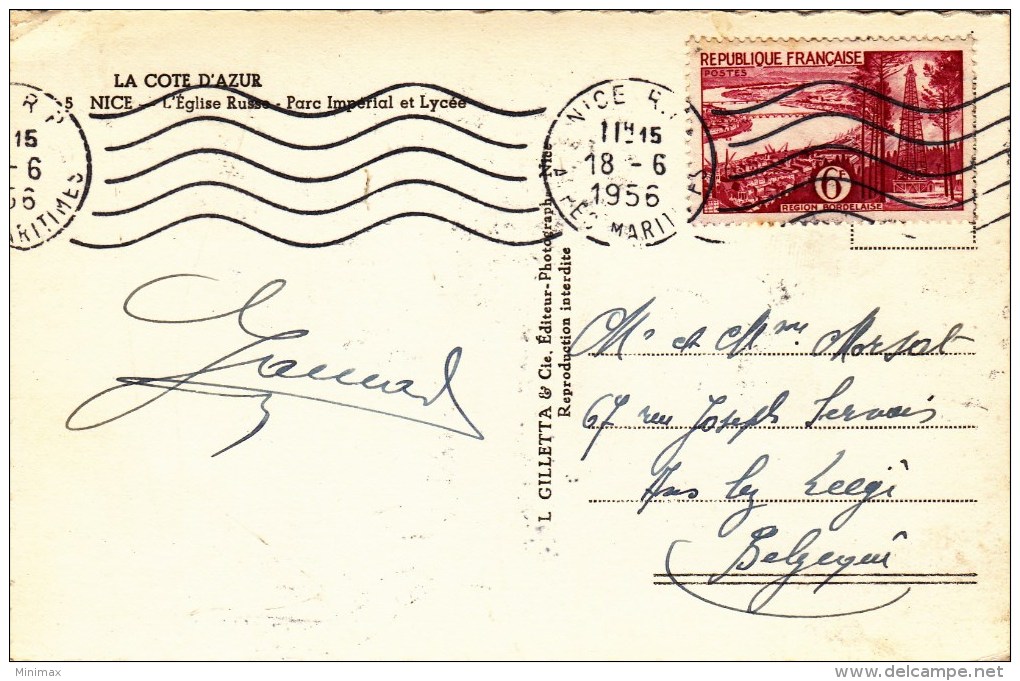 LA COTE D'AZUR
5 NICE - L'Église Russe - Parc Impérial et Lycée
R P
15
-6
56
MARITIMES
NICE R.P.
11H15
18 - 6
1956
ALPES MARITIMES
REPUBLIQUE FRANÇAISE
POSTES
6F
REGION BORDELAISE
L. GILLETTA & Cie, Éditeur-Photographe - Nice
Reproduction interdite
Mr et Mme
67 rue Joseph Servais
Ans lez Liège
Belgique
Minimax
www.delcampe.net